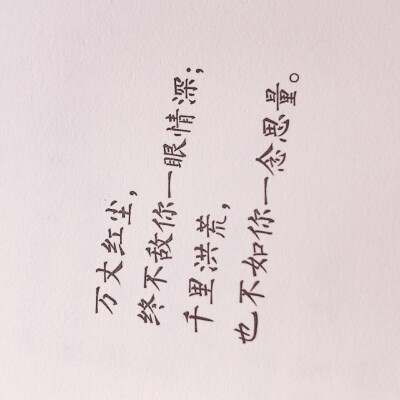 万丈红尘，
终不敌你一眼情深；
千里洪荒，
也不如你一念思量。